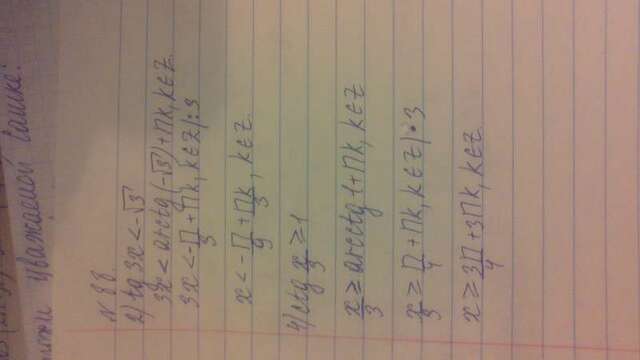 уважаемой Сашке:
N 88.
2) tg 3x < -√3
3x < arctg(-√3) + πk, k∈Z
3x < -π/3 + πk, k∈Z |:3
x < -π/9 + πk/3, k∈Z.
4) ctg x/3 ≥ 1
x/3 ≥ arcctg 1 + πk, k∈Z
x/3 ≥ π/4 + πk, k∈Z | • 3
x ≥ 3π/4 + 3πk, k∈Z.